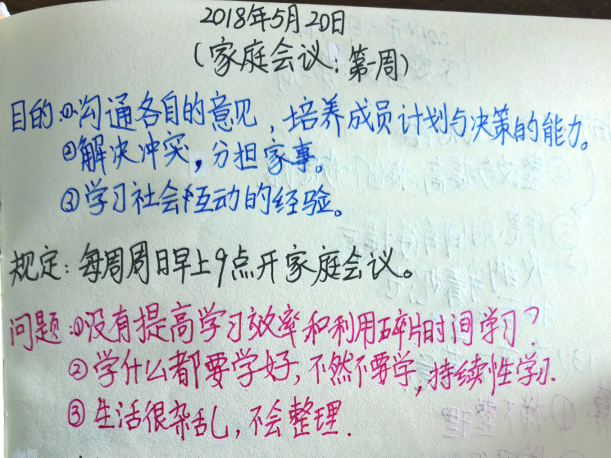 2018年5月20日
(家庭会议:第一周)
目的:①沟通各自的意见,培养成员计划与决策的能力。
②解决冲突,分担家事。
③学习社会性互动的经验。
规定:每周周日早上9点开家庭会议。
问题:①没有提高学习效率和利用碎片时间学习?
②学什么都要学好,不然不要学,持续性学习.
③生活很杂乱,不会整理.